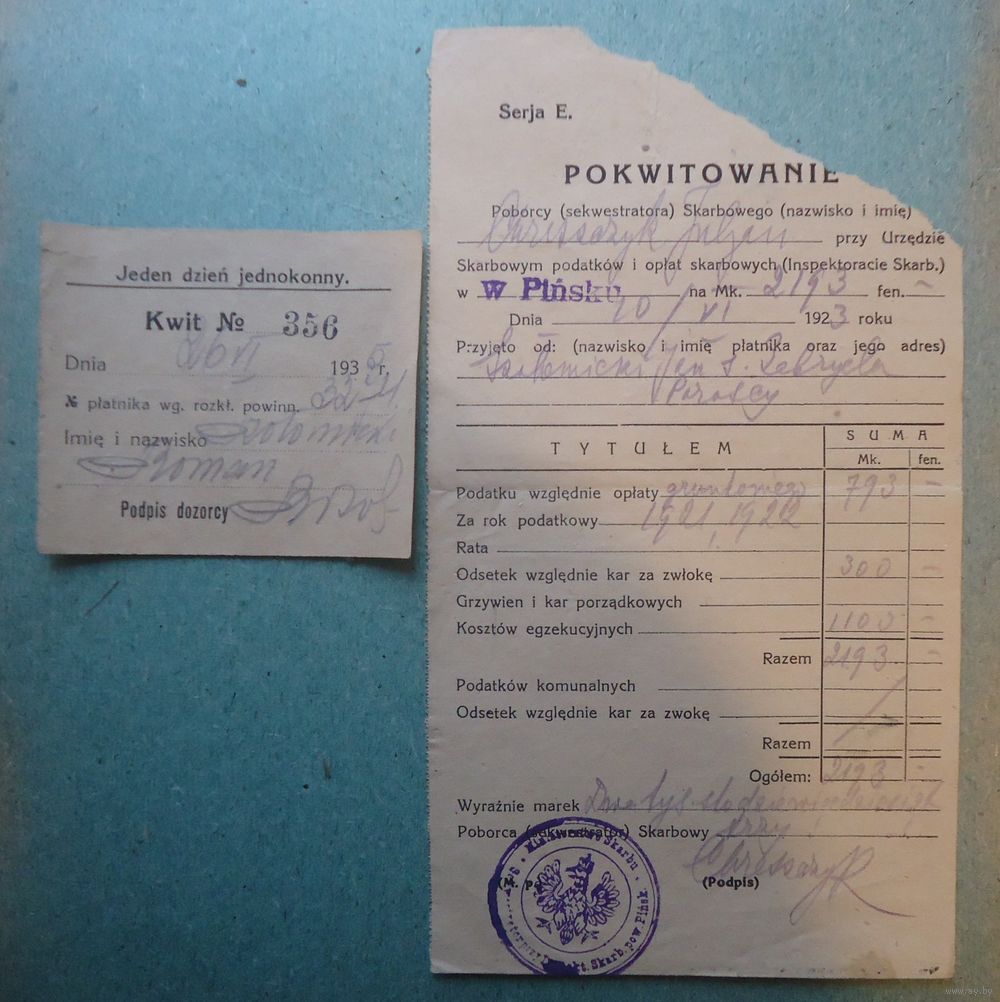 Jeden dzień jednokonny.
Kwit № 356
Dnia 26 VI 1935 r.
№ płatnika wg. rozkł. powinn.
Imię i nazwisko
Roman
Podpis dozorcy
Serja E.
POKWITOWANIE
Poborcy (sekwestratora) Skarbowego (nazwisko i imię)
przy Urzędzie
Skarbowym podatków i opłat skarbowych (Inspektoracie Skarb.)
w W Pińsku na Mk. 2193 fen. —
Dnia 20/VI 1923 roku
Przyjęto od: (nazwisko i imię płatnika oraz jego adres)
Jan
TYTUŁEM
SUMA
Mk. fen.
Podatku względnie opłaty gruntowego 793 —
Za rok podatkowy 1921, 1922
Rata
Odsetek względnie kar za zwłokę 300 —
Grzywien i kar porządkowych
Kosztów egzekucyjnych 1100 —
Razem 2193 —
Podatków komunalnych
Odsetek względnie kar za zwokę
Razem
Ogółem: 2193 —
Wyraźnie marek Dwa tys. sto dziewięćdziesiąt
Poborca (sekwestrator) Skarbowy trzy
(M. p.) (Podpis)
Ministerstwo Skarbu
Skarb. pow. Pińsk
www.ray.by